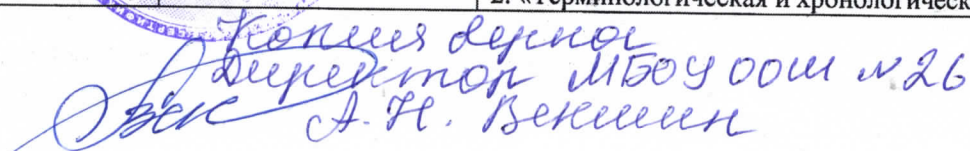 2. «Терминологическая и хронологическ
Копия верна
Директор МБОУ ООШ №26
А.Н. Векшин